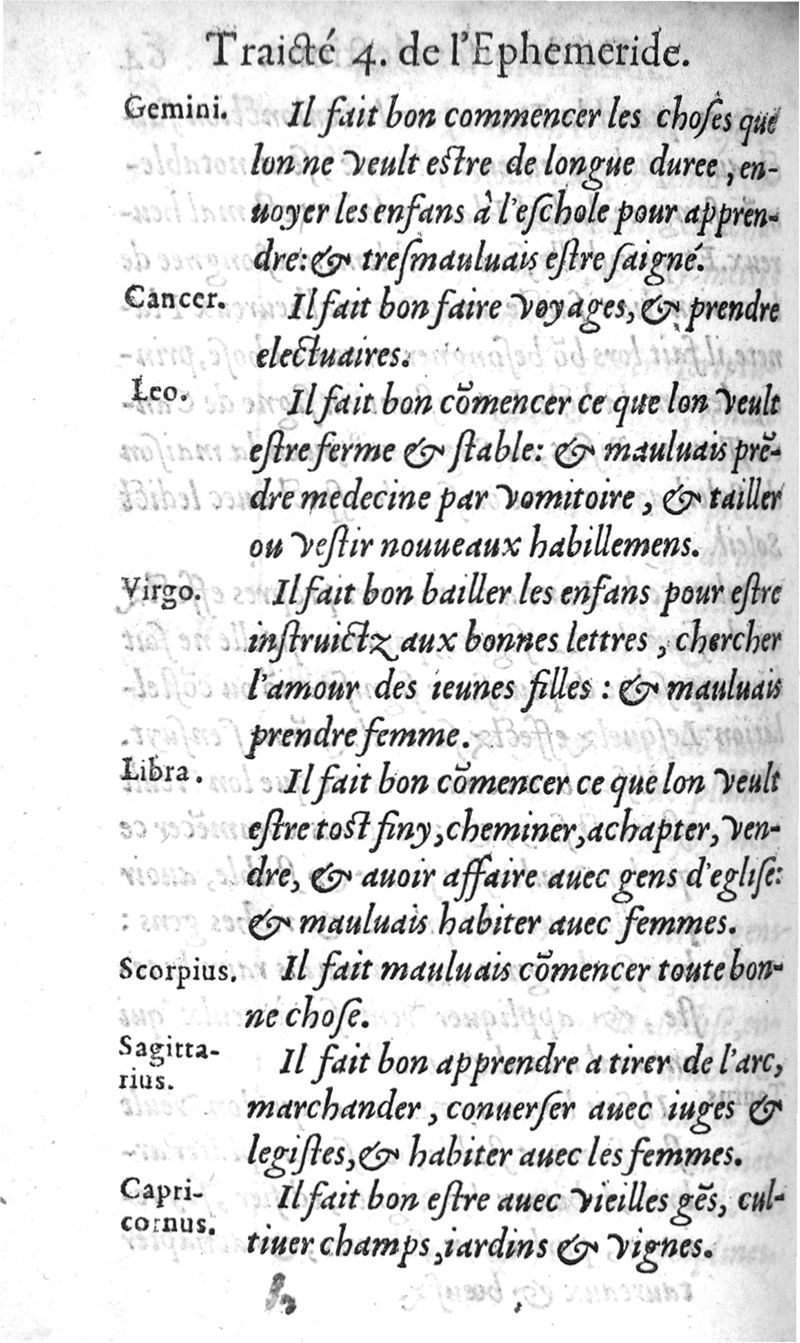 Traicté 4. de l'Ephemeride.
Gemini. Il fait bon commencer les choſes que
lon ne veult eſtre de longue duree, en-
uoyer les enfans à l'eſchole pour appren-
dre: & treſmauluais eſtre ſaigné.
Cancer. Il fait bon faire voyages, & prendre
electuaires.
Leo. Il fait bon cōmencer ce que lon veult
eſtre ferme & ſtable: & mauluais prē-
dre medecine par vomitoire, & tailler
ou veſtir nouueaux habillemens.
Virgo. Il fait bon bailler les enfans pour eſtre
inſtruictz aux bonnes lettres, chercher
l'amour des ieunes filles: & mauluais
prendre femme.
Libra. Il fait bon cōmencer ce que lon veult
eſtre toſt finy, cheminer, achapter, ven-
dre, & auoir affaire auec gens d'egliſe:
& mauluais habiter auec femmes.
Scorpius. Il fait mauluais cōmencer toute bon-
ne choſe.
Sagitta- Il fait bon apprendre a tirer de l'arc,
rius.
marchander, conuerſer auec iuges &
legiſtes, & habiter auec les femmes.
Capri- Il fait bon eſtre auec vieilles gēs, cul-
cornus.
tiuer champs, iardins & vignes.